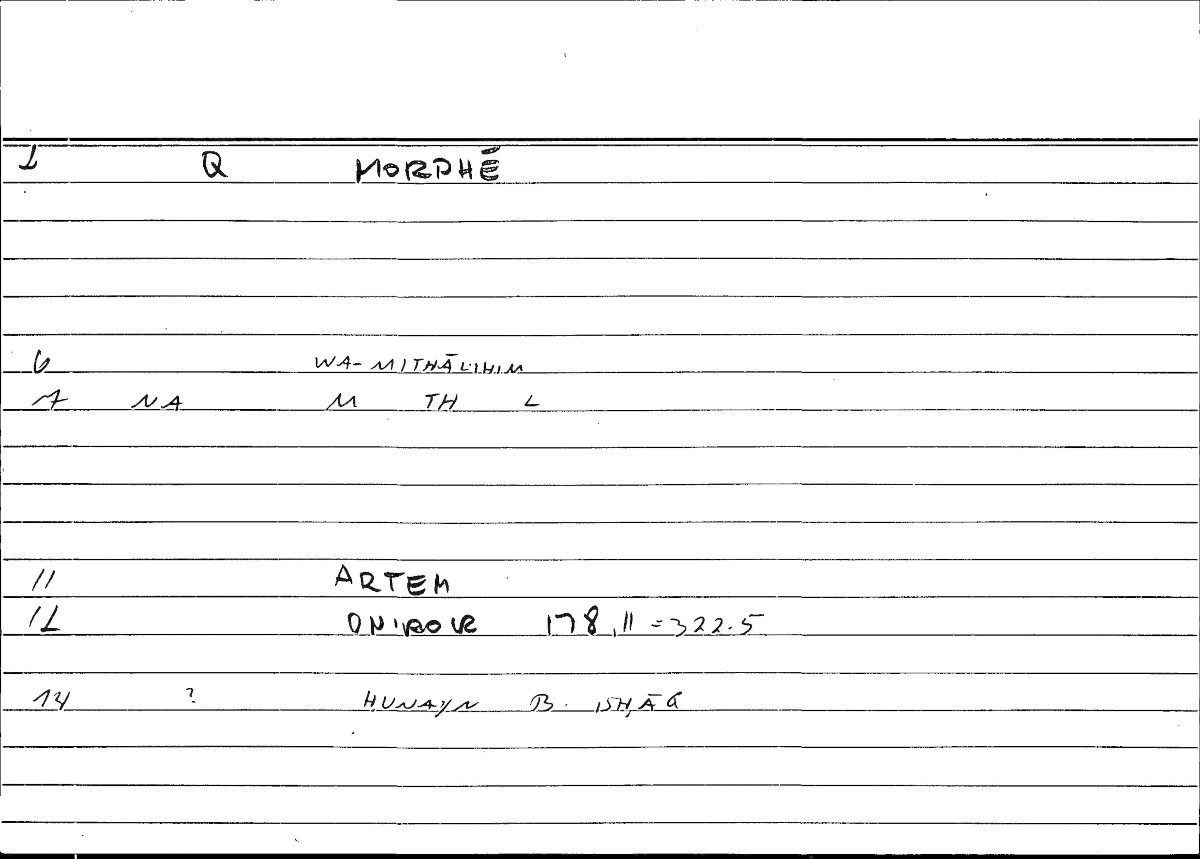 1 Q MORPHĒ
6 WA-MITHĀLIHIM
7 NA M TH L
11 ARTEM
12 ONIROCR 178,11=322.5
14 ? ḤUNAYN B. ISḤĀQ